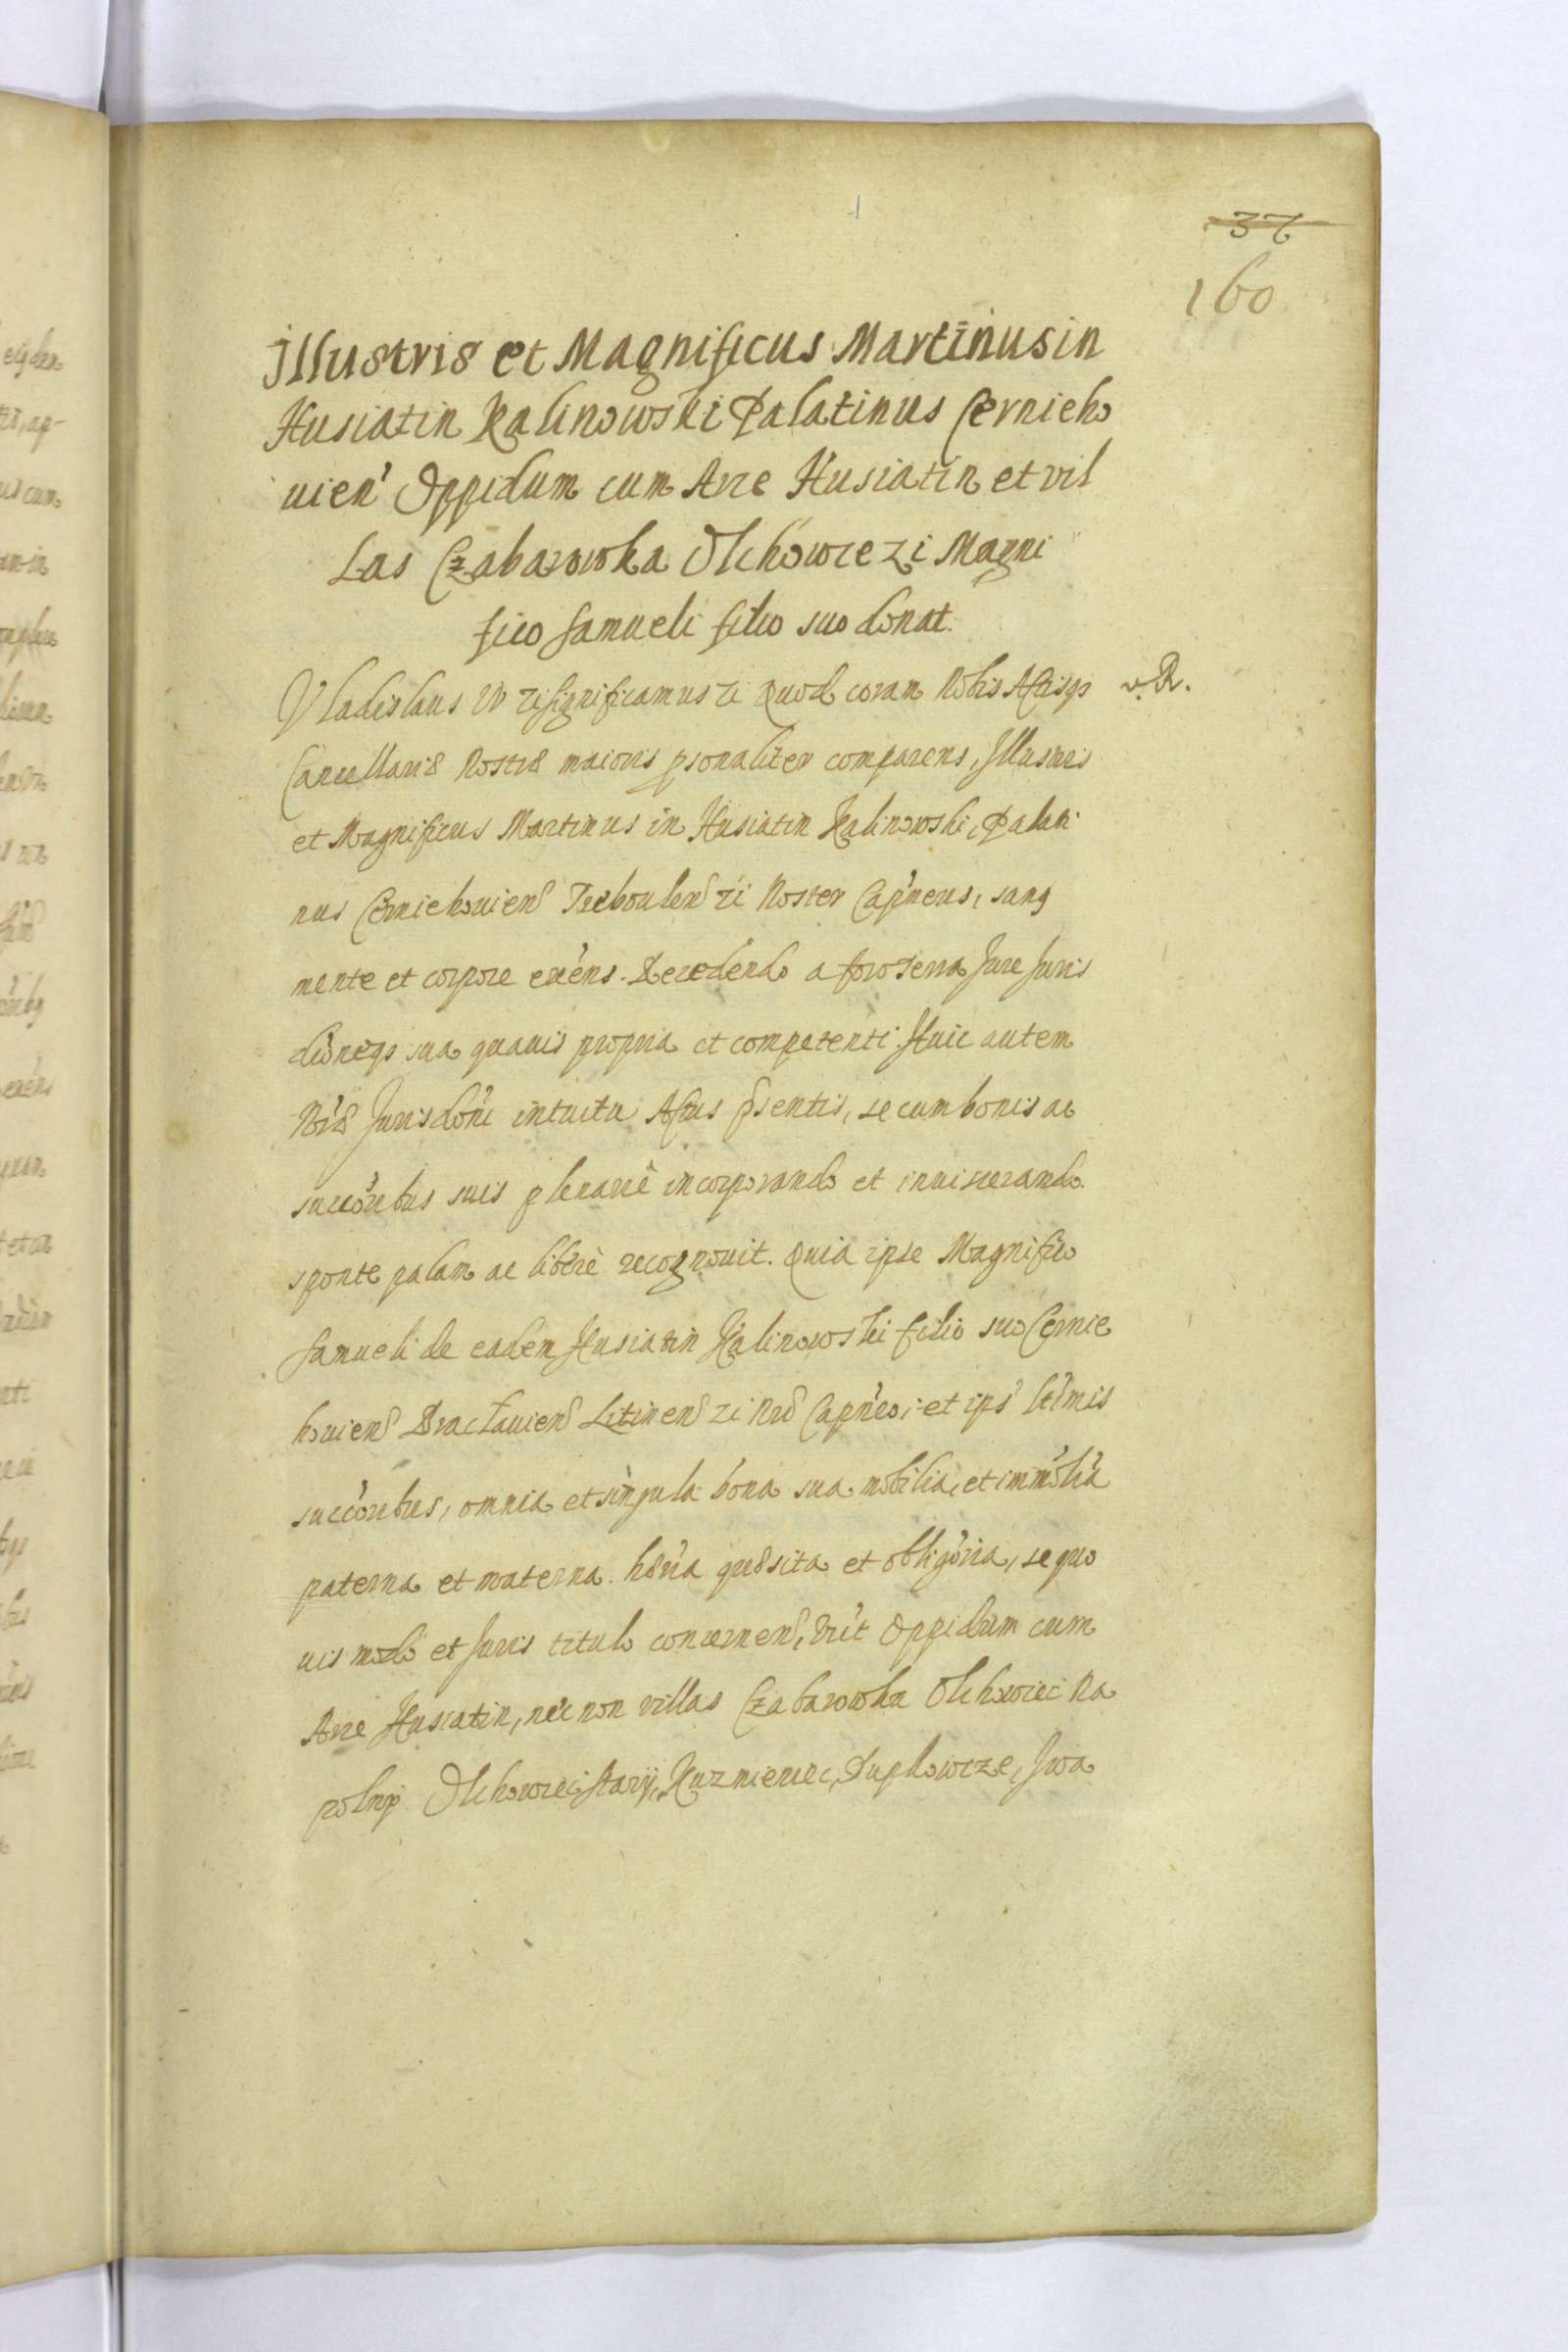 37
160
Illustris et Magnificus Martinus in
Husiatin Kalinowski Palatinus Czernieho
uien' Oppidum cum Arce Husiatin et vil
Las Czabarowka Olchowce zi Magni
fico Samueli filio suo donat.
Vladislaus IV zi significamus zi Quod coram Nobis Actisqs v. R.
Cancellariæ Nostræ maioris psonaliter comparens, Illustris
et Magnificus Martinus in Husiatin Kalinowski, Palati
nus Czerniehouien Treboulen zi Noster Capneus, sanq
mente et corpore exens. Recedendo a foro Terra Jure Juris
dionéqs sua quauis propria et competenti. Huic autem
Nræ Jurisdoni intuitu Actus psentis, se cum bonis ac
succoribus suis plenarie incorporando et inuiscerando.
sponte palam ac libere recognouit. Quia ipse Magnifico
Samueli de eadem Husiatin Kalinowski filio suo Czernie
houien Braclauien Litinen zi Nro Capneo, et ips' ltimis
succoribus, omnia et singula bona sua mobilia, et immolia
paterna et materna. hæria quæsita et obligoria, se quo
uis modo et Juris titulo concernen, vut Oppidum cum
Arce Husiatin, nec non villas Czabarowka Olchowiec Na
polnÿ. Olchowiec Starÿ, Kuzmieniec, Suplowcze, Iwa